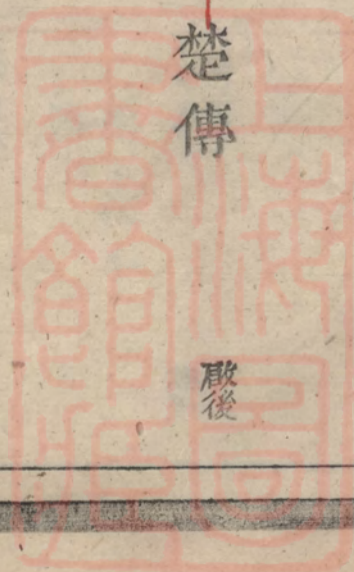 楚傳
啟後
上海圖
書館藏